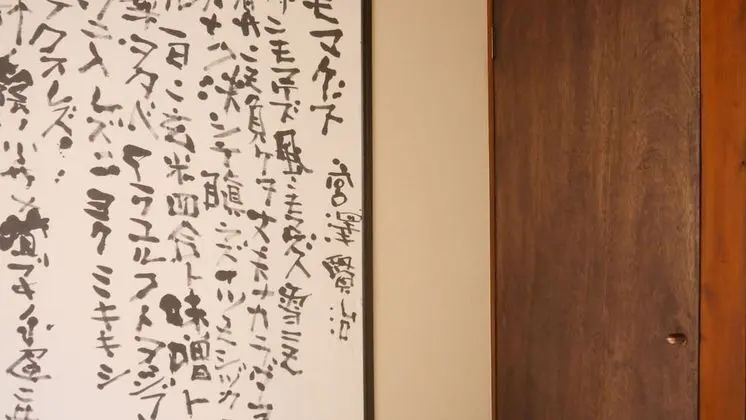 モマケズ 宮澤賢治
ニモマケズ風ニモマケズ雪ニモ
負ケヌ丈夫ナカラダヲ
決シテ瞋ラズイツモシヅカ
一日ニ玄米四合ト味噌ト
菜ヲタベアラユルコトヲジブ
ニ入レズニヨクミキキシ
ワスレズ
蔭ノ小サナ萱ブキノ小屋ニ